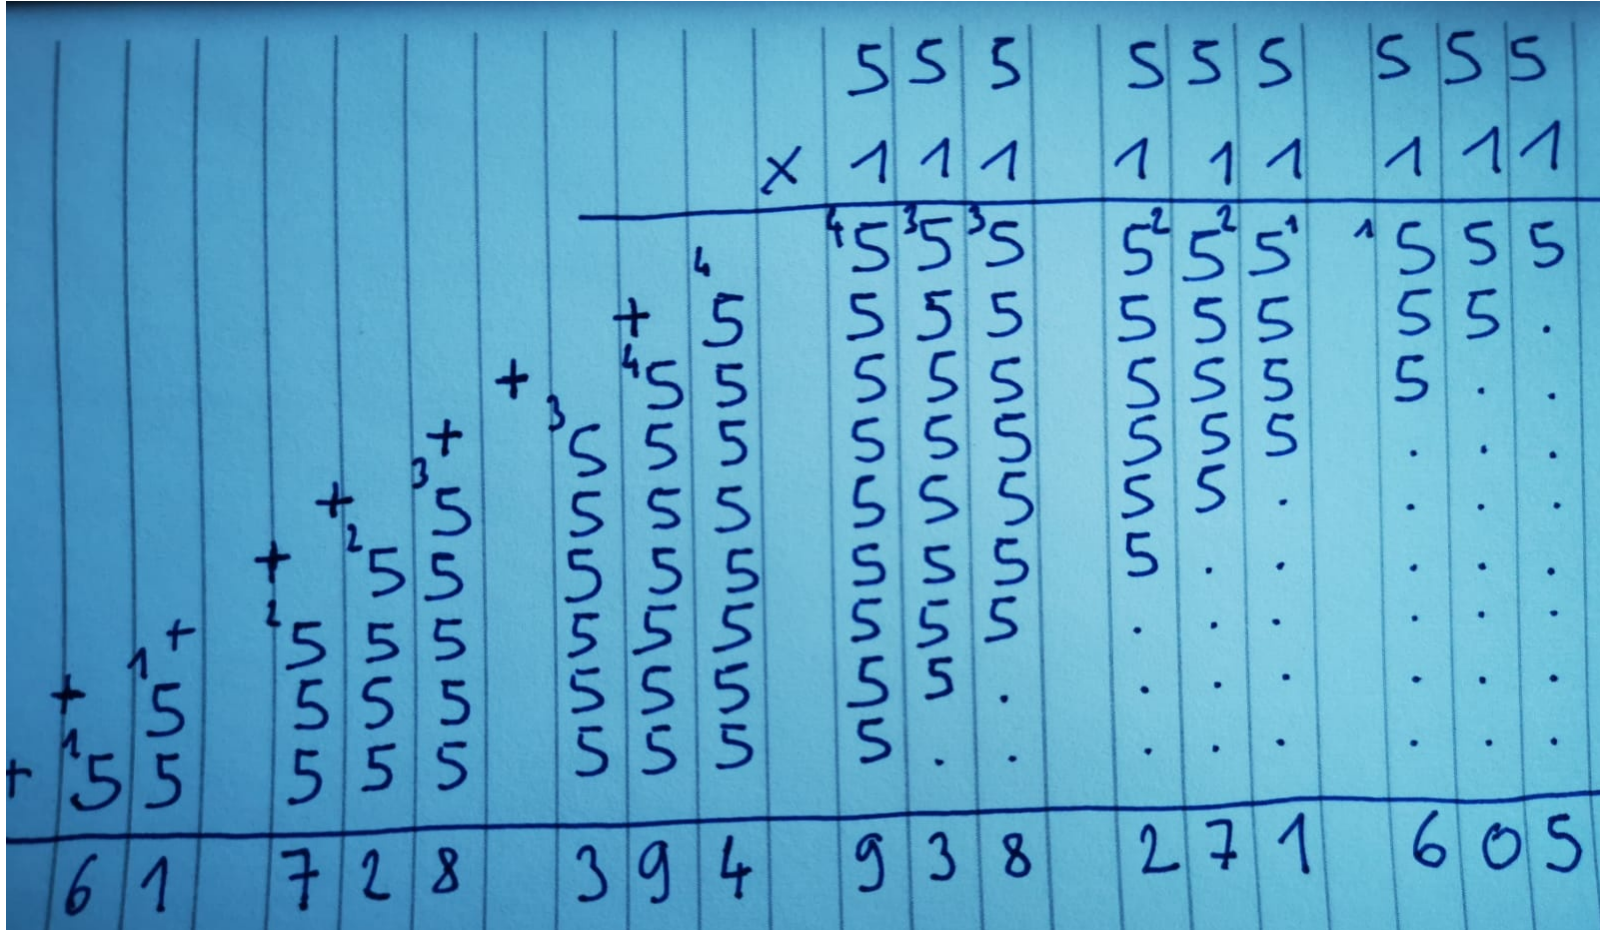 555 555 555
x 111 111 111
4 5 3 5 3 5 5 2 5 2 5 1 1 5 5 5
4
+ 5 555 555 55.
+ 4 5 5 555 555 5..
+ 3 5 5 5 555 555 ...
+ 3 5 555 555 55. ...
+ 2 5 5 555 555 5.. ...
+ 2 5 5 5 555 555 ... ...
+ 1 5 555 555 55. ... ...
+ 1 5 5 555 555 5.. ... ...
61 728 394 938 271 605